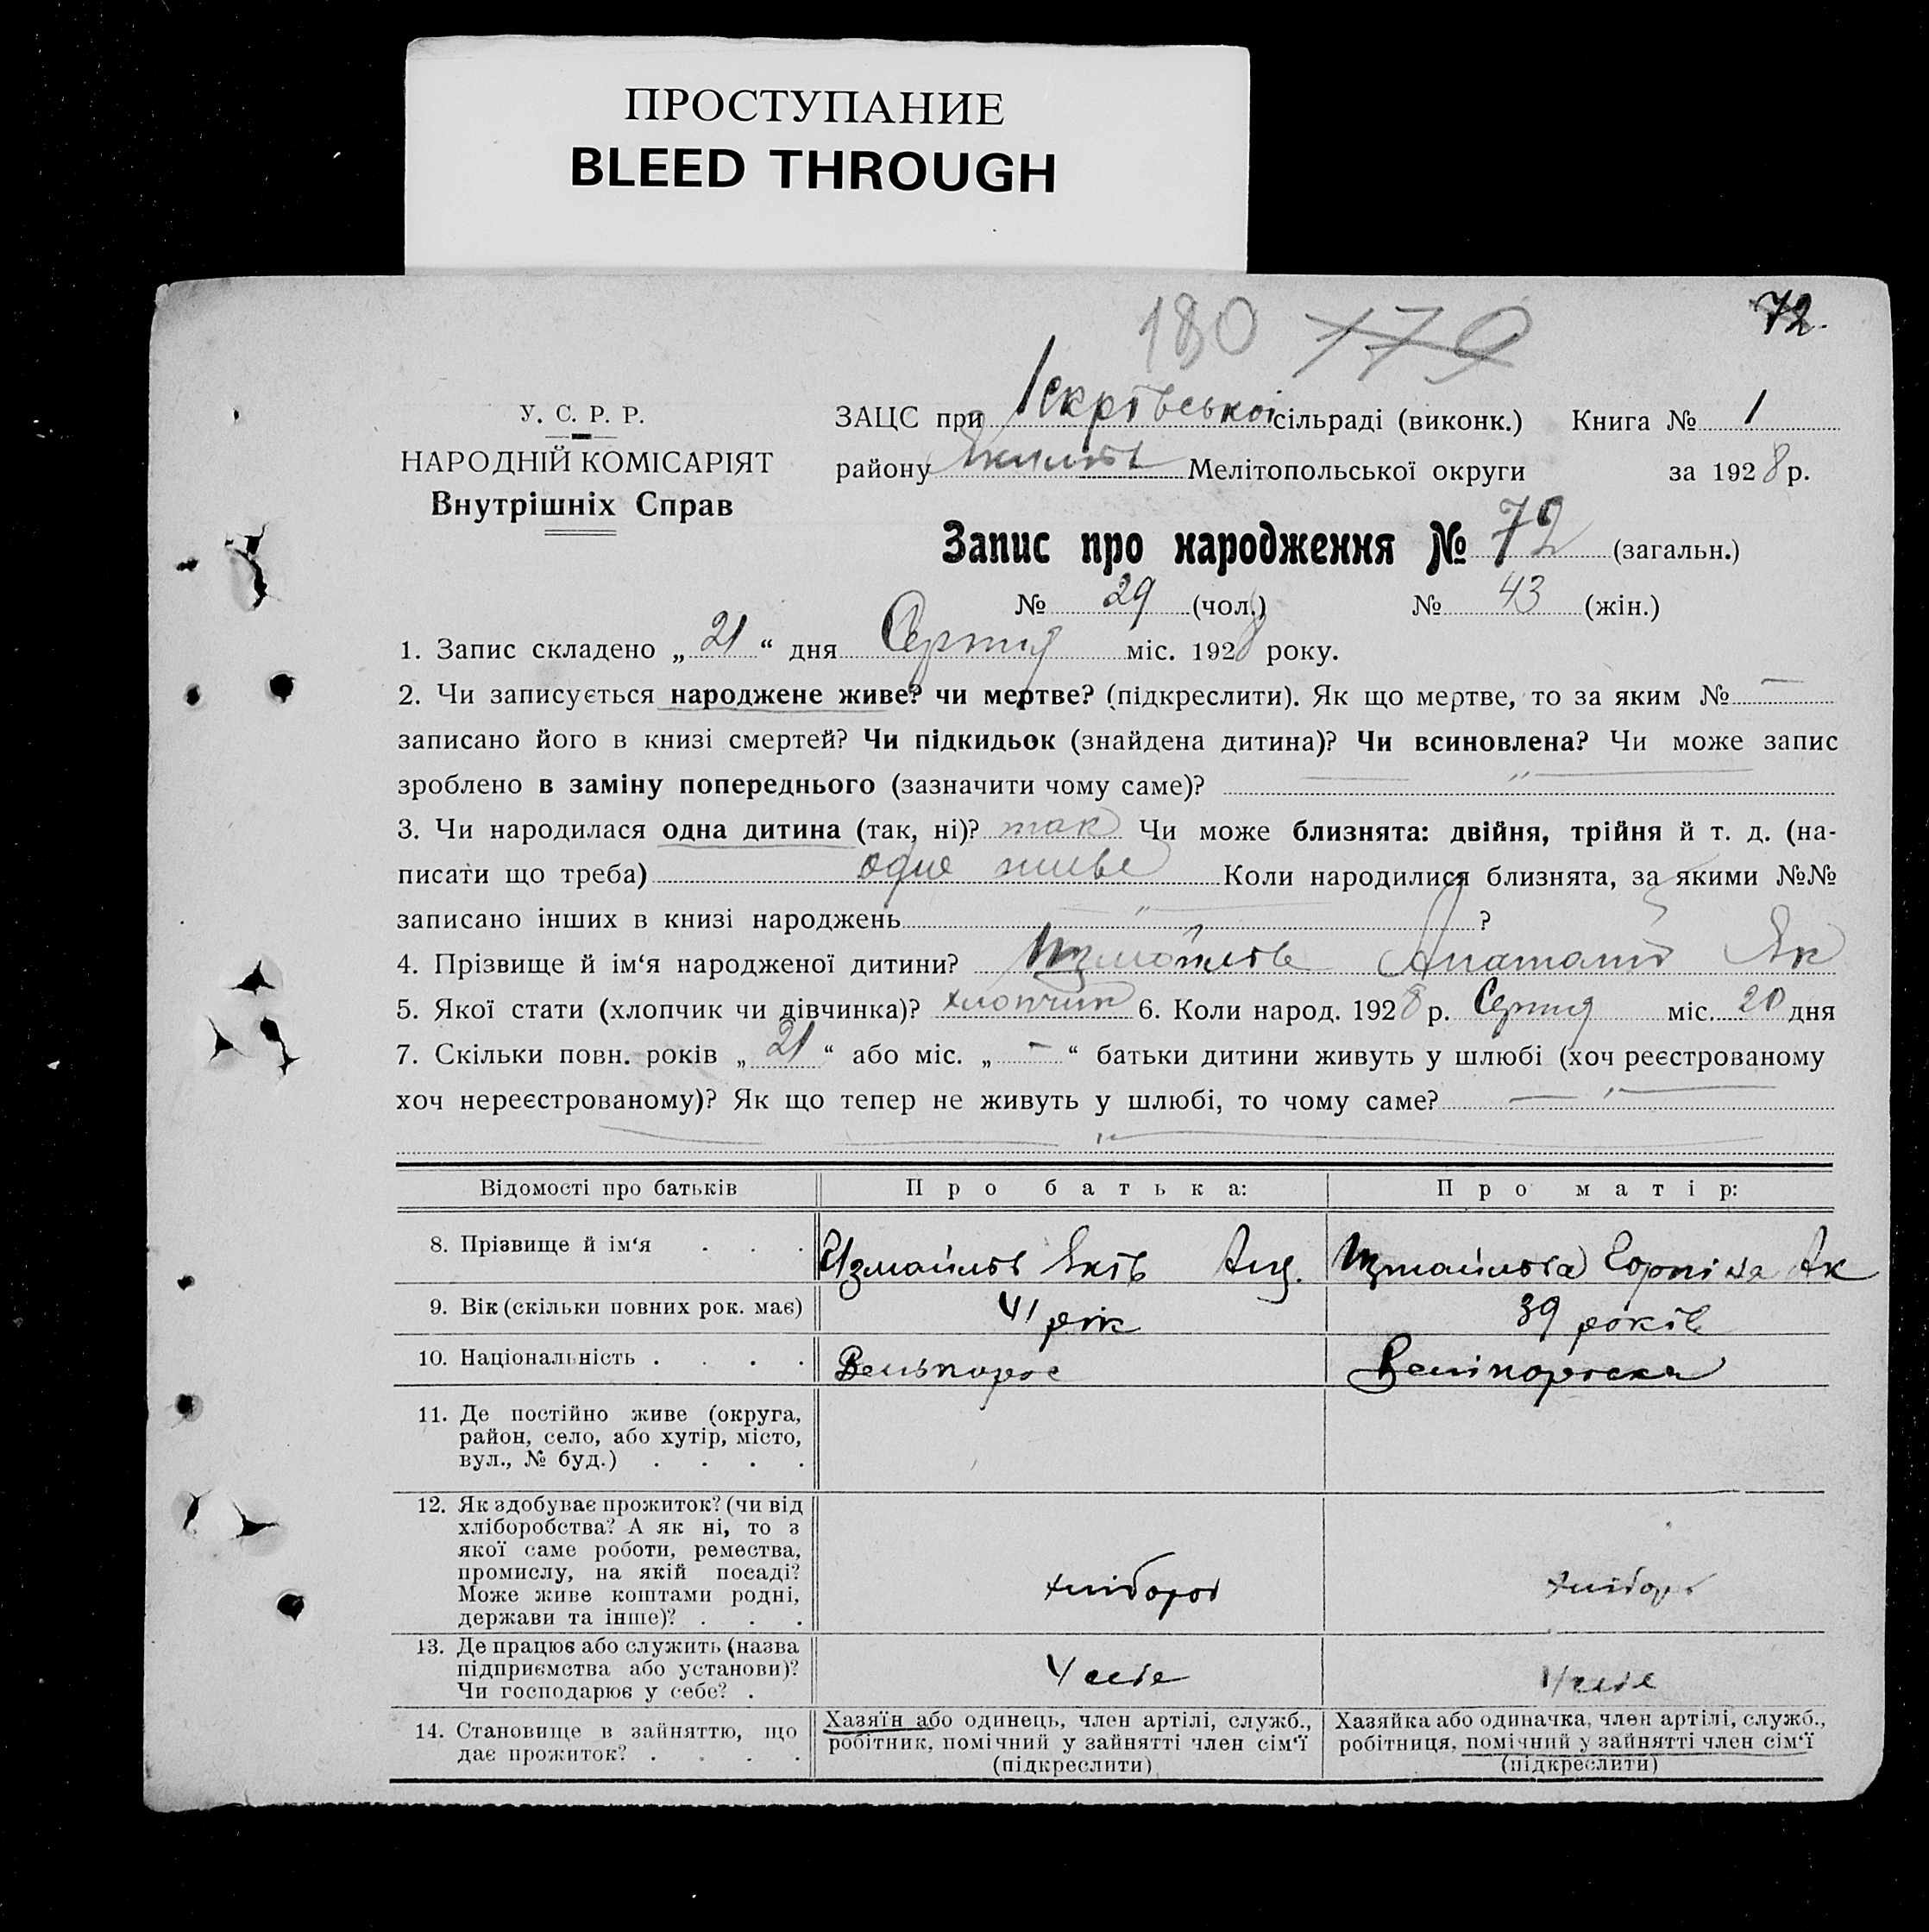 ПРОСТУПАНИЕ
BLEED THROUGH
180 179 72.
У. С. Р. Р.
НАРОДНІЙ КОМІСАРІЯТ
Внутрішніх Справ
ЗАЦС при сільраді (виконк.) Книга № 1
району Мелітопольської округи за 1928 р.
Запис про народження № 72 (загальн.)
№ 29 (чол.) № 43 (жін.)
1. Запис складено „ 21 “ дня Серпня міс. 1928 року.
2. Чи записується народжене живе? чи мертве? (підкреслити). Як що мертве, то за яким № —
записано його в книзі смертей? Чи підкидьок (знайдена дитина)? Чи всиновлена? Чи може запис
зроблено в заміну попереднього (зазначити чому саме)? — „ —
3. Чи народилася одна дитина (так, ні)? так Чи може близнята: двійня, трійня й т. д. (на-
писати що треба) одне живе Коли народилися близнята, за якими №№
записано інших в книзі народжень — „ — ?
4. Прізвище й ім‘я народженої дитини? Измаїлов Анатолій Як
5. Якої стати (хлопчик чи дівчинка)? хлопчик 6. Коли народ. 1928 р. Серпня міс. 20 дня
7. Скільки повн. років „ 21 “ або міс. „ — “ батьки дитини живуть у шлюбі (хоч реєстрованому
хоч нереєстрованому)? Як що тепер не живуть у шлюбі, то чому саме? — „ —
— „ —
Відомості про батьків Про батька: Про матір:
8. Прізвище й ім‘я . . . Измайлов Яків Анд. Измайлова Горпина Ак
9. Вік (скільки повних рок. має) 41 рік 39 років
10. Національність . . . . Великорос Великороска
11. Де постійно живе (округа,
район, село, або хутір, місто,
вул., № буд.) . . . .
12. Як здобуває прожиток? (чи від
хліборобства? А як ні, то з
якої саме роботи, ремества,
промислу, на якій посаді?
Може живе коштами родні,
держави та інше)? . . . хлібороб хлібор
13. Де працює або служить (назва
підприємства або установи)?
Чи господарює у себе? . У себе У себе
14. Становище в зайняттю, що
дає прожиток? . . . .
Хазяїн або одинець, член артілі, служб.,
робітник, помічний у зайнятті член сім‘ї
(підкреслити)
Хазяйка або одиначка, член артілі, служб.,
робітниця, помічний у зайнятті член сім‘ї
(підкреслити)